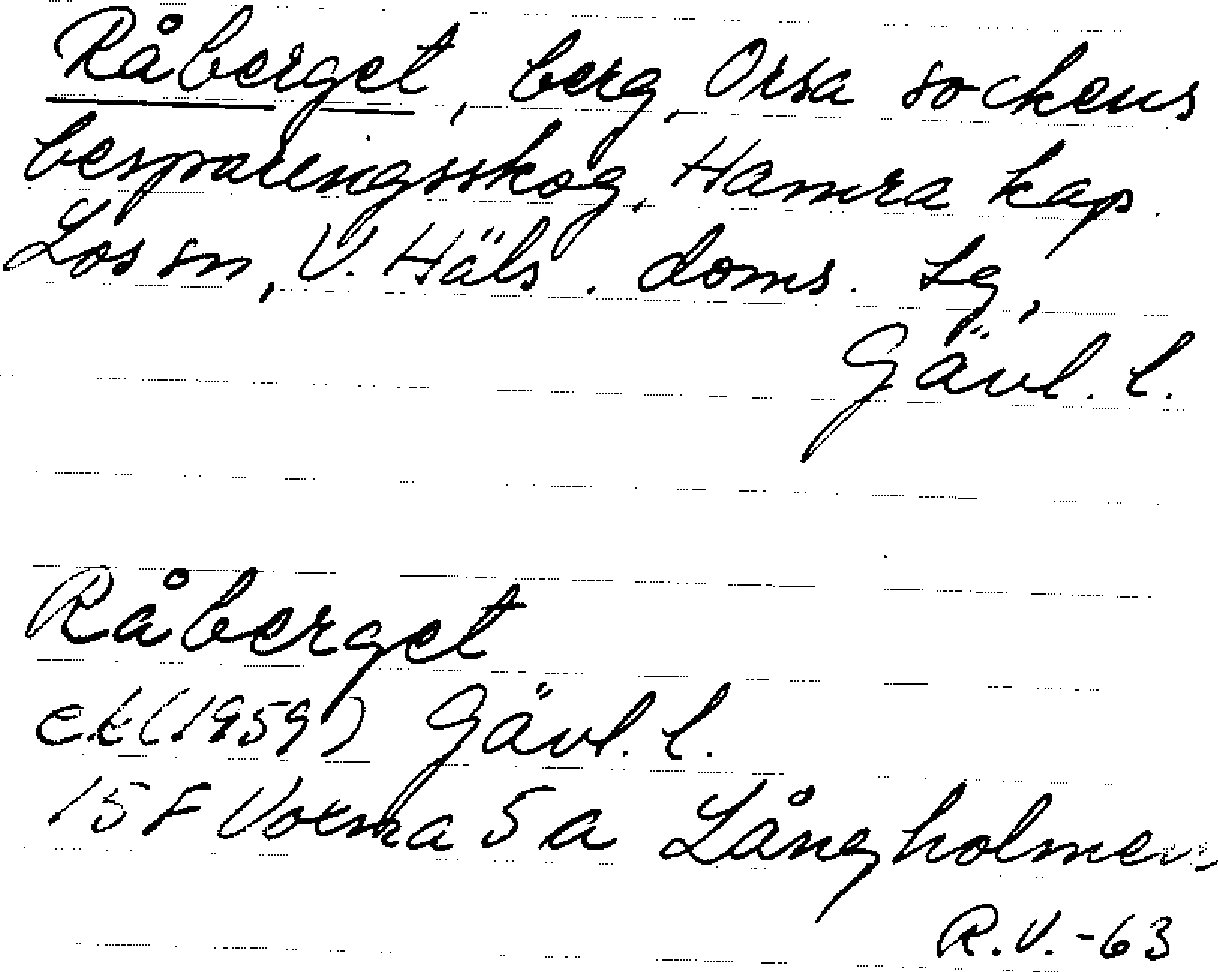 Råberget, berg, Orsa sockens
besparingsskog, Hamra kap.
Los sn, V. Häls. doms. tg,
Gävl. l.
Råberget
ek(1959) Gävl. l.
15 F Voxna 5 a Långholmen
R.V.-63